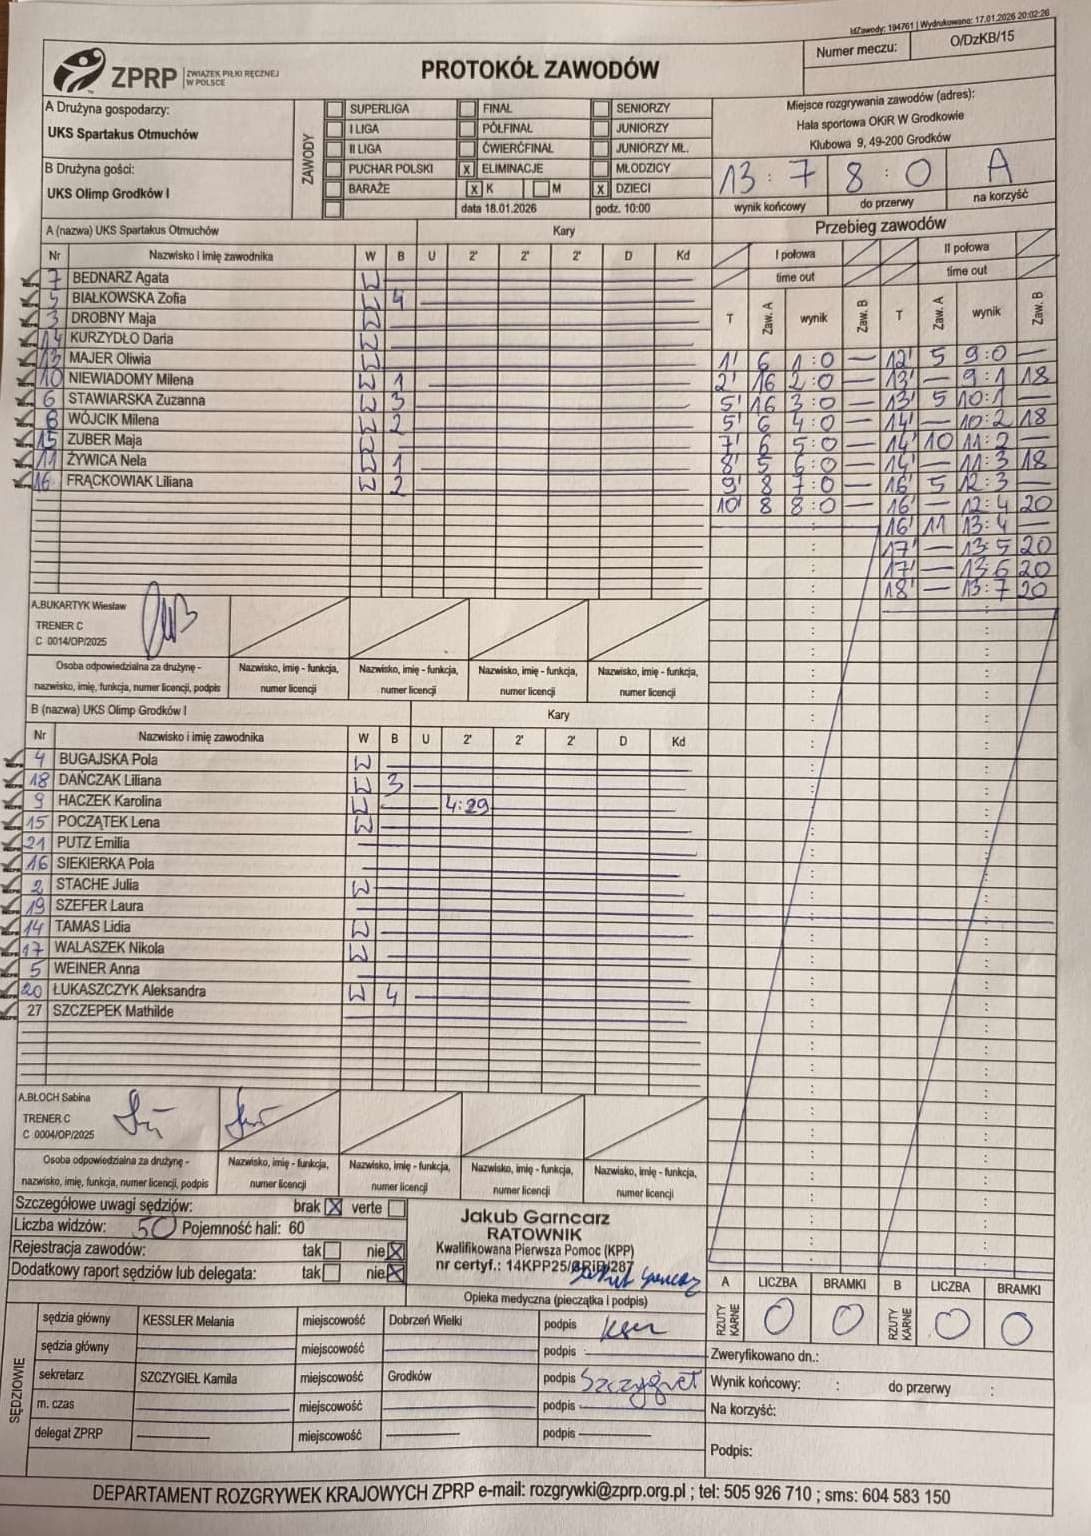 IdZawody: 194761 | Wydrukowano: 17.01.2026 20:02:26
ZPRP ZWIĄZEK PIŁKI RĘCZNEJ W POLSCE
PROTOKÓŁ ZAWODÓW
Numer meczu: O/DzKB/15
A Drużyna gospodarzy:
UKS Spartakus Otmuchów
B Drużyna gości:
UKS Olimp Grodków I
ZAWODY
SUPERLIGA FINAŁ SENIORZY
I LIGA PÓŁFINAŁ JUNIORZY
II LIGA ĆWIERĆFINAŁ JUNIORZY MŁ.
PUCHAR POLSKI x ELIMINACJE MŁODZICY
BARAŻE x K M x DZIECI
data 18.01.2026 godz. 10:00
Miejsce rozgrywania zawodów (adres):
Hala sportowa OKiR W Grodkowie
Klubowa 9, 49-200 Grodków
13 : 7 8 : 0 A
wynik końcowy do przerwy na korzyść
A (nazwa) UKS Spartakus Otmuchów Kary
Nr Nazwisko i imię zawodnika W B U 2' 2' 2' D Kd
7 BEDNARZ Agata W
5 BIAŁKOWSKA Zofia W 4
3 DROBNY Maja W
14 KURZYDŁO Daria W
13 MAJER Oliwia W
10 NIEWIADOMY Milena W 1
6 STAWIARSKA Zuzanna W 3
8 WÓJCIK Milena W 2
15 ZUBER Maja W
11 ŻYWICA Nela W 1
16 FRĄCKOWIAK Liliana W 2
A.BUKARTYK Wiesław
TRENER C
C 0014/OP/2025
Osoba odpowiedzialna za drużynę - nazwisko, imię, funkcja, numer licencji, podpis
Nazwisko, imię - funkcja, numer licencji
Nazwisko, imię - funkcja, numer licencji
Nazwisko, imię - funkcja, numer licencji
Nazwisko, imię - funkcja, numer licencji
B (nazwa) UKS Olimp Grodków I Kary
Nr Nazwisko i imię zawodnika W B U 2' 2' 2' D Kd
4 BUGAJSKA Pola W
18 DAŃCZAK Liliana W 3
9 HACZEK Karolina W 4:29
15 POCZĄTEK Lena W
21 PUTZ Emilia
16 SIEKIERKA Pola
2 STACHE Julia W
19 SZEFER Laura
14 TAMAS Lidia W
17 WALASZEK Nikola W
5 WEINER Anna
20 ŁUKASZCZYK Aleksandra W 4
27 SZCZEPEK Mathilde
A.BŁOCH Sabina
TRENER C
C 0004/OP/2025
Osoba odpowiedzialna za drużynę - nazwisko, imię, funkcja, numer licencji, podpis
Nazwisko, imię - funkcja, numer licencji
Nazwisko, imię - funkcja, numer licencji
Nazwisko, imię - funkcja, numer licencji
Nazwisko, imię - funkcja, numer licencji
Przebieg zawodów
I połowa II połowa
time out time out
T Zaw. A wynik Zaw. B T Zaw. A wynik Zaw. B
1' 6 1:0 — 12' 5 9:0 —
2' 16 2:0 — 13' — 9:1 18
5' 16 3:0 — 13' 5 10:1 —
5' 6 4:0 — 14' — 10:2 18
7' 6 5:0 — 14' 10 11:2 —
8' 5 6:0 — 14' — 11:3 18
9' 8 7:0 — 16' 5 12:3 —
10' 8 8:0 — 16' — 12:4 20
16' 11 13:4 —
17' — 13:5 20
17' — 13:6 20
18' — 13:7 20
Szczegółowe uwagi sędziów: brak x verte
Liczba widzów: 50 Pojemność hali: 60
Rejestracja zawodów: tak nie x
Dodatkowy raport sędziów lub delegata: tak nie x
Jakub Garncarz
RATOWNIK
Kwalifikowana Pierwsza Pomoc (KPP)
nr certyf.: 14KPP25/BRID/287
Opieka medyczna (pieczątka i podpis)
A LICZBA BRAMKI B LICZBA BRAMKI
RZUTY KARNE 0 0 RZUTY KARNE 0 0
SĘDZIOWIE
sędzia główny KESSLER Melania miejscowość Dobrzeń Wielki podpis
sędzia główny miejscowość podpis
sekretarz SZCZYGIEŁ Kamila miejscowość Grodków podpis Szczygieł
m. czas miejscowość podpis
delegat ZPRP miejscowość podpis
Zweryfikowano dn.:
Wynik końcowy: : do przerwy :
Na korzyść:
Podpis:
DEPARTAMENT ROZGRYWEK KRAJOWYCH ZPRP e-mail: rozgrywki@zprp.org.pl ; tel: 505 926 710 ; sms: 604 583 150